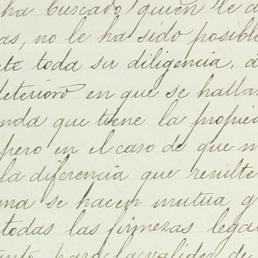 ha buscado quien le d
as, no le ha sido posible
nte toda su diligencia, a
deterioro en que se halla
nda que tiene la propie
pero en el caso de que n
la diferencia que resulte
una se hacen mutua g
todas las firmezas lega
para la validez de